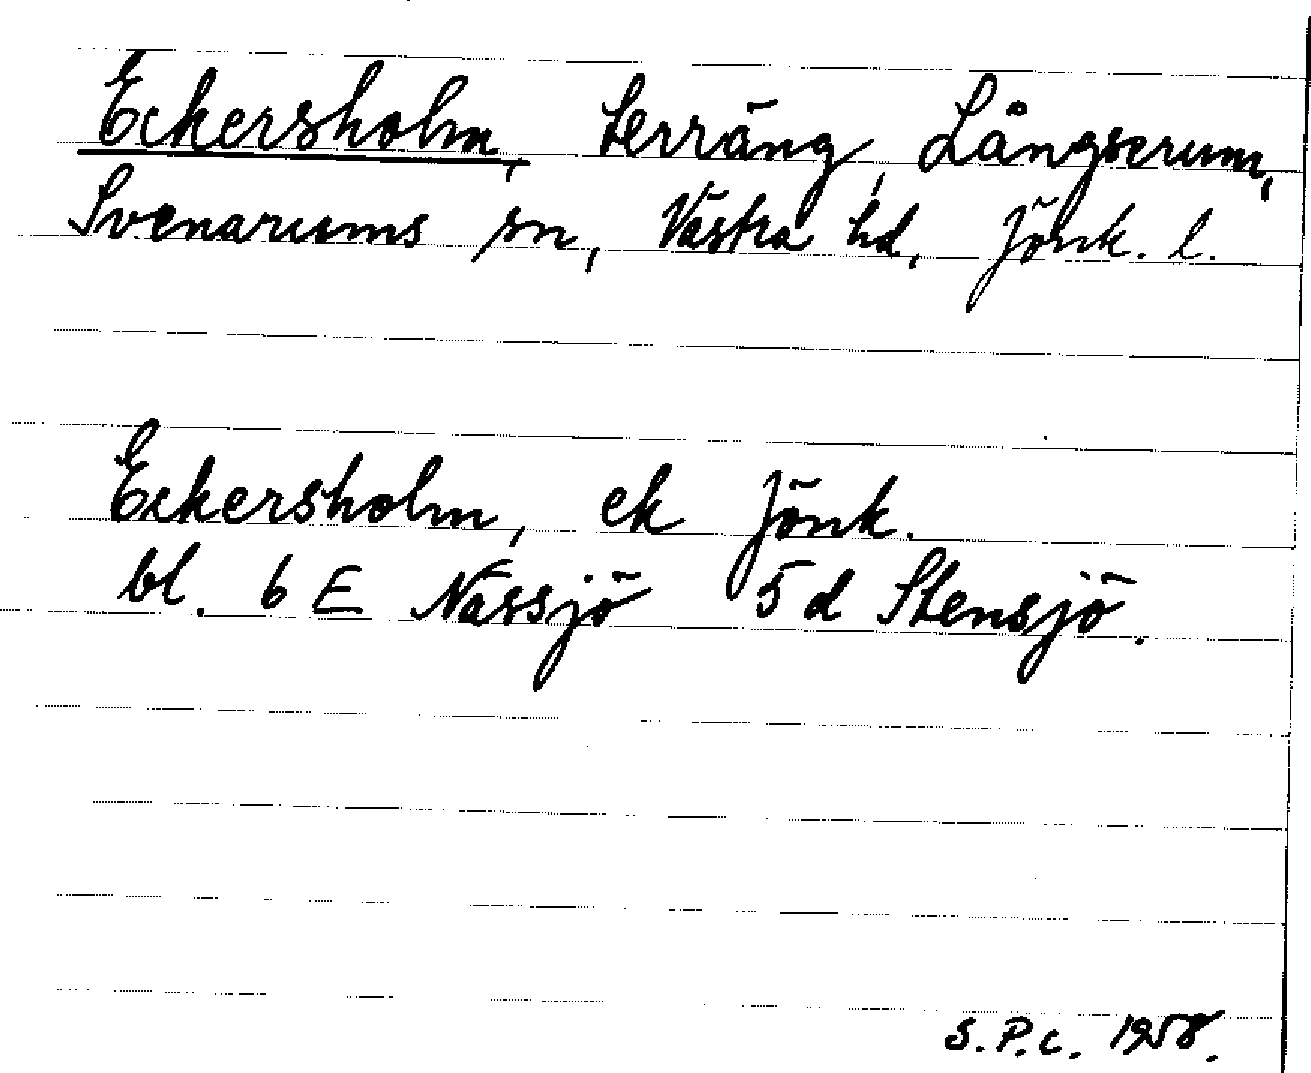 Eckersholm, terräng, Långserum,
Svenarums sn, Västra hd, Jönk. l.
Eckersholm, ek Jönk.
bl. 6 E Nässjö 5 d Stensjö.
S.P.C. 1958.